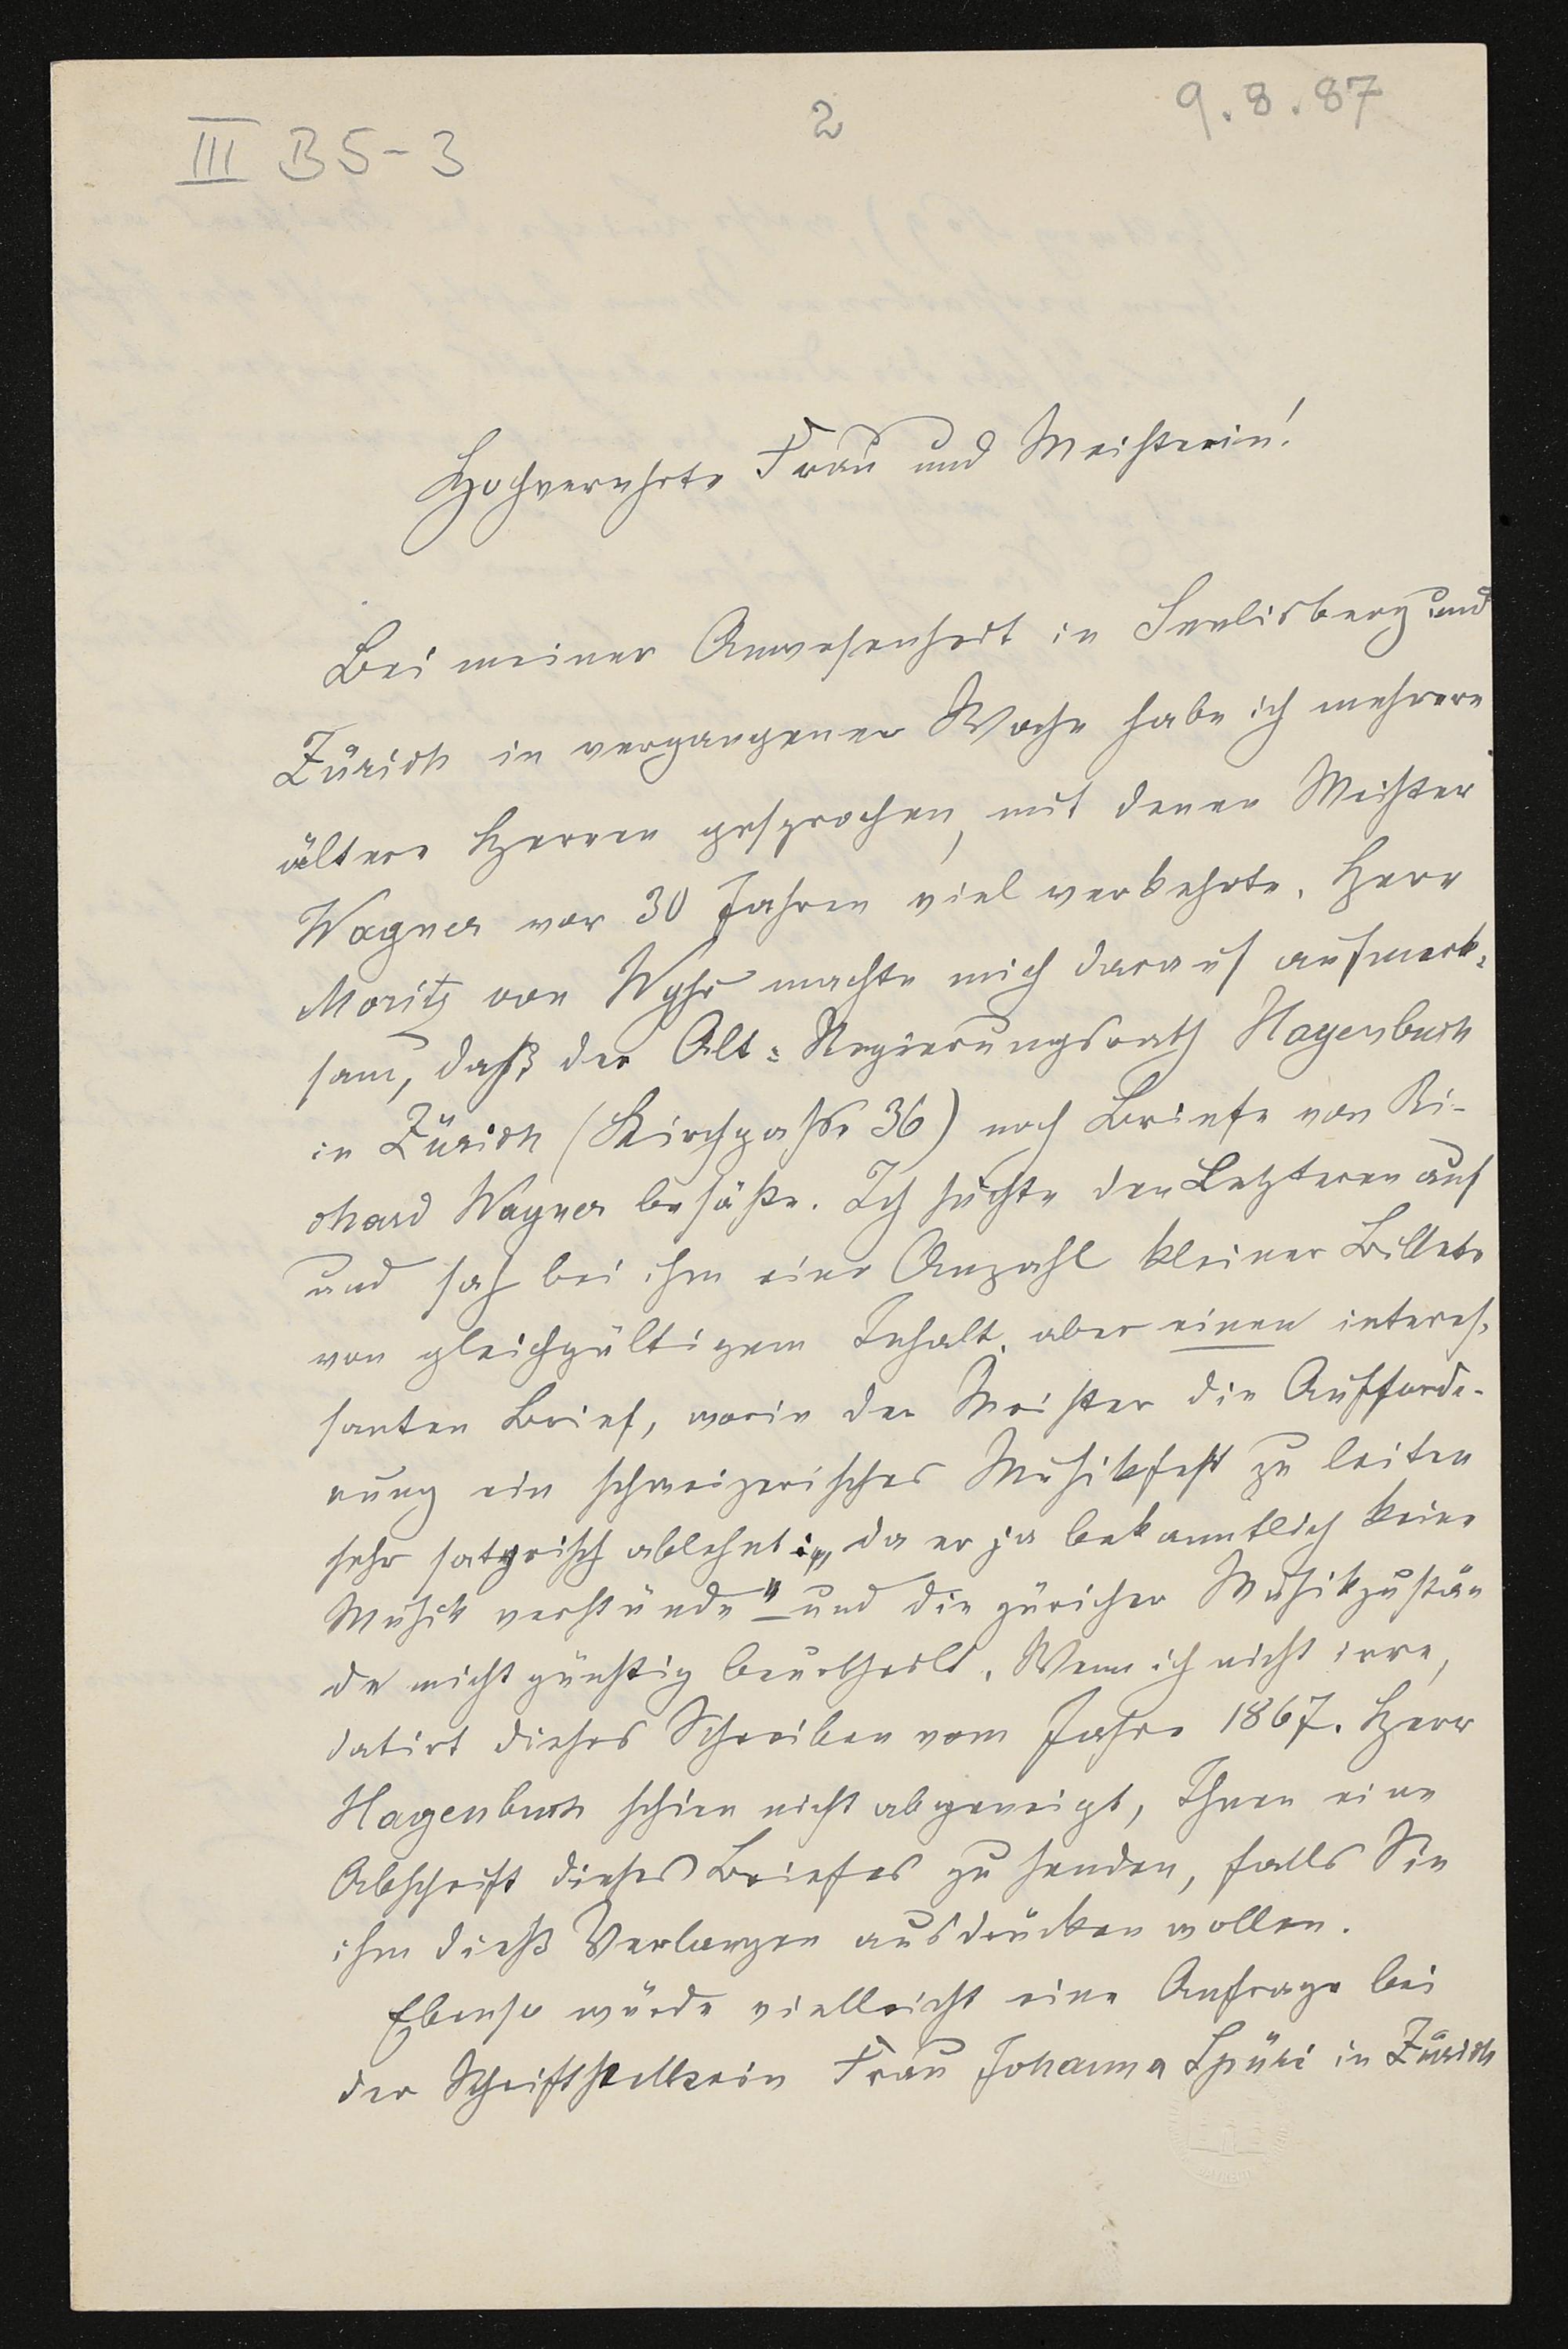 III B5-3
2
9.8.87
Hochverehrte Frau und Meisterin!
Bei meiner Anwesenheit in Seelisberg und
Zürich in vergangener Woche habe ich mehrere
ältere Herren gesprochen, mit denen Meister
Wagner vor 30 Jahren viel verkehrte. Herr
Moritz von Wyhs machte mich darauf aufmerk-
sam, daß der Alt-Regierungsrath Hagenbuch
in Zürich (Kirchgasse 36) noch Briefe von Ri-
chard Wagner besäße. Ich suchte den Letzteren auf
und sah bei ihm eine Anzahl kleiner Billets
von gleichgültigem Inhalt, aber einen interes-
santen Brief, worin der Meister die Aufforde-
rung ein schweizerisches Musikfest zu leiten
sehr satyrisch ablehnt: „da er ja bekanntlich keine
Musik verstünde" und die züricher Musikzustän
de nicht günstig beurtheilt. Wenn ich nicht irre,
datirt dieses Schreiben vom Jahre 1867. Herr
Hagenbuch schien nicht abgeneigt, Ihnen eine
Abschrift dieses Briefes zu senden, falls Sie
ihm dieß Verlangen ausdrücken wollen.
Ebenso würde vielleicht eine Anfrage bei
der Schriftstellerin Frau Johanna Spüri in Zürich